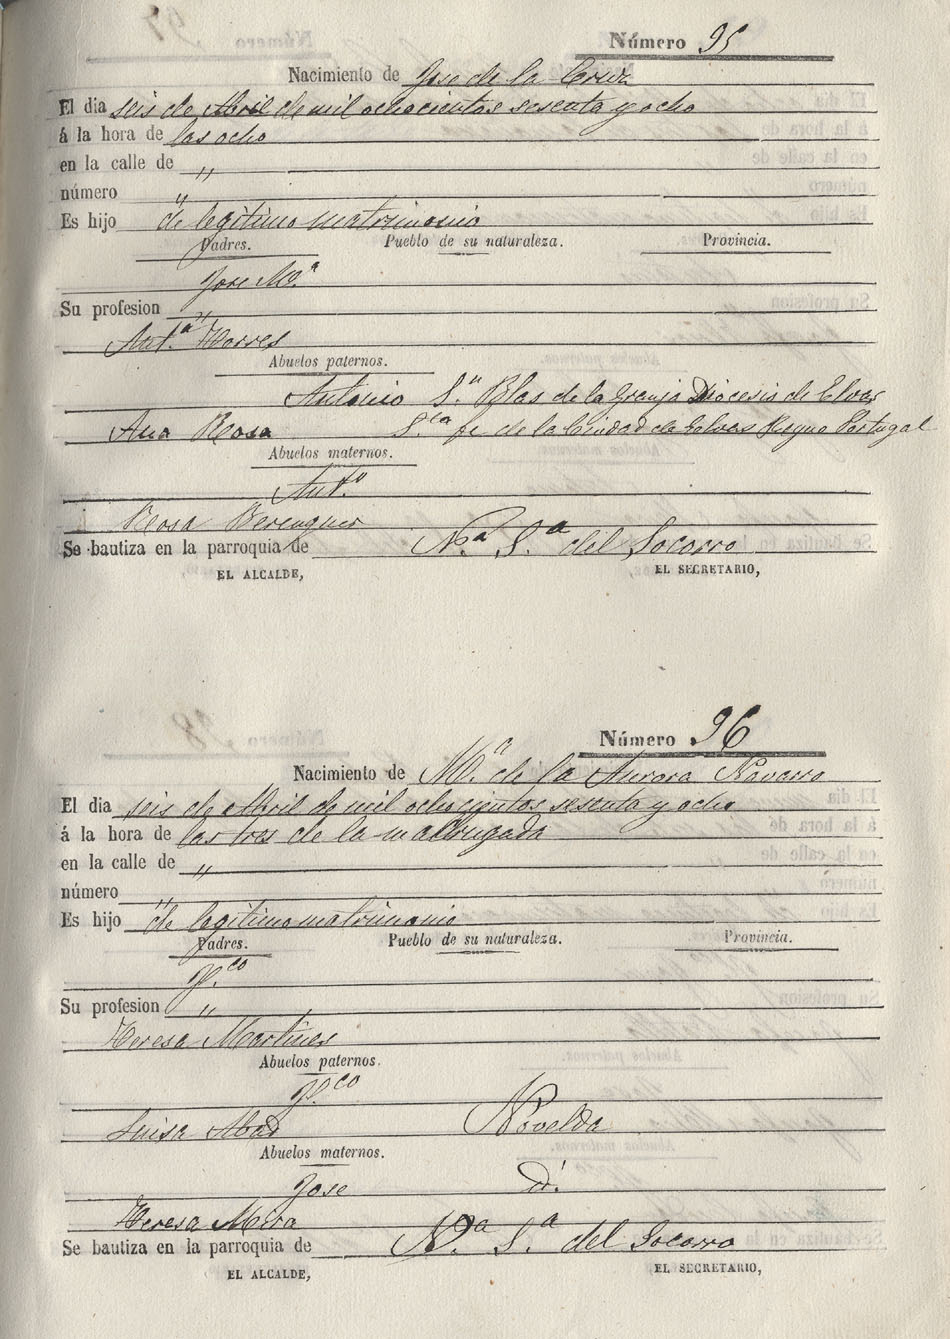 Número 95
Nacimiento de Jose de la Cruz
El dia seis de Abril de mil ochocientos sesenta y ocho
á la hora de las ocho
en la calle de "
número "
Es hijo de legitimo matrimonio
Padres. Pueblo de su naturaleza. Provincia.
Jose M.ª
Su profesion "
Ant.ª Torres
Abuelos paternos.
Antonio S.n Blas de la Granja Diocesis de Elvas
Ana Rosa S.ta fe de la Ciudad de Gelvas Reyno Portugal
Abuelos maternos.
Ant.º
Rosa Berenguer
Se bautiza en la parroquia de N.ª S.ª del Socorro
EL ALCALDE, EL SECRETARIO,
Número 96
Nacimiento de M.ª de la Aurora Navarro
El dia seis de Abril de mil ochocientos sesenta y ocho
á la hora de las tres de la madrugada
en la calle de "
número "
Es hijo de legitimo matrimonio
Padres. Pueblo de su naturaleza. Provincia.
F.co
Su profesion "
Teresa Martines
Abuelos paternos.
F.co
Luisa Abad Novelda
Abuelos maternos.
Jose d.
Teresa Mira
Se bautiza en la parroquia de N.ª S.ª del Socorro
EL ALCALDE, EL SECRETARIO,